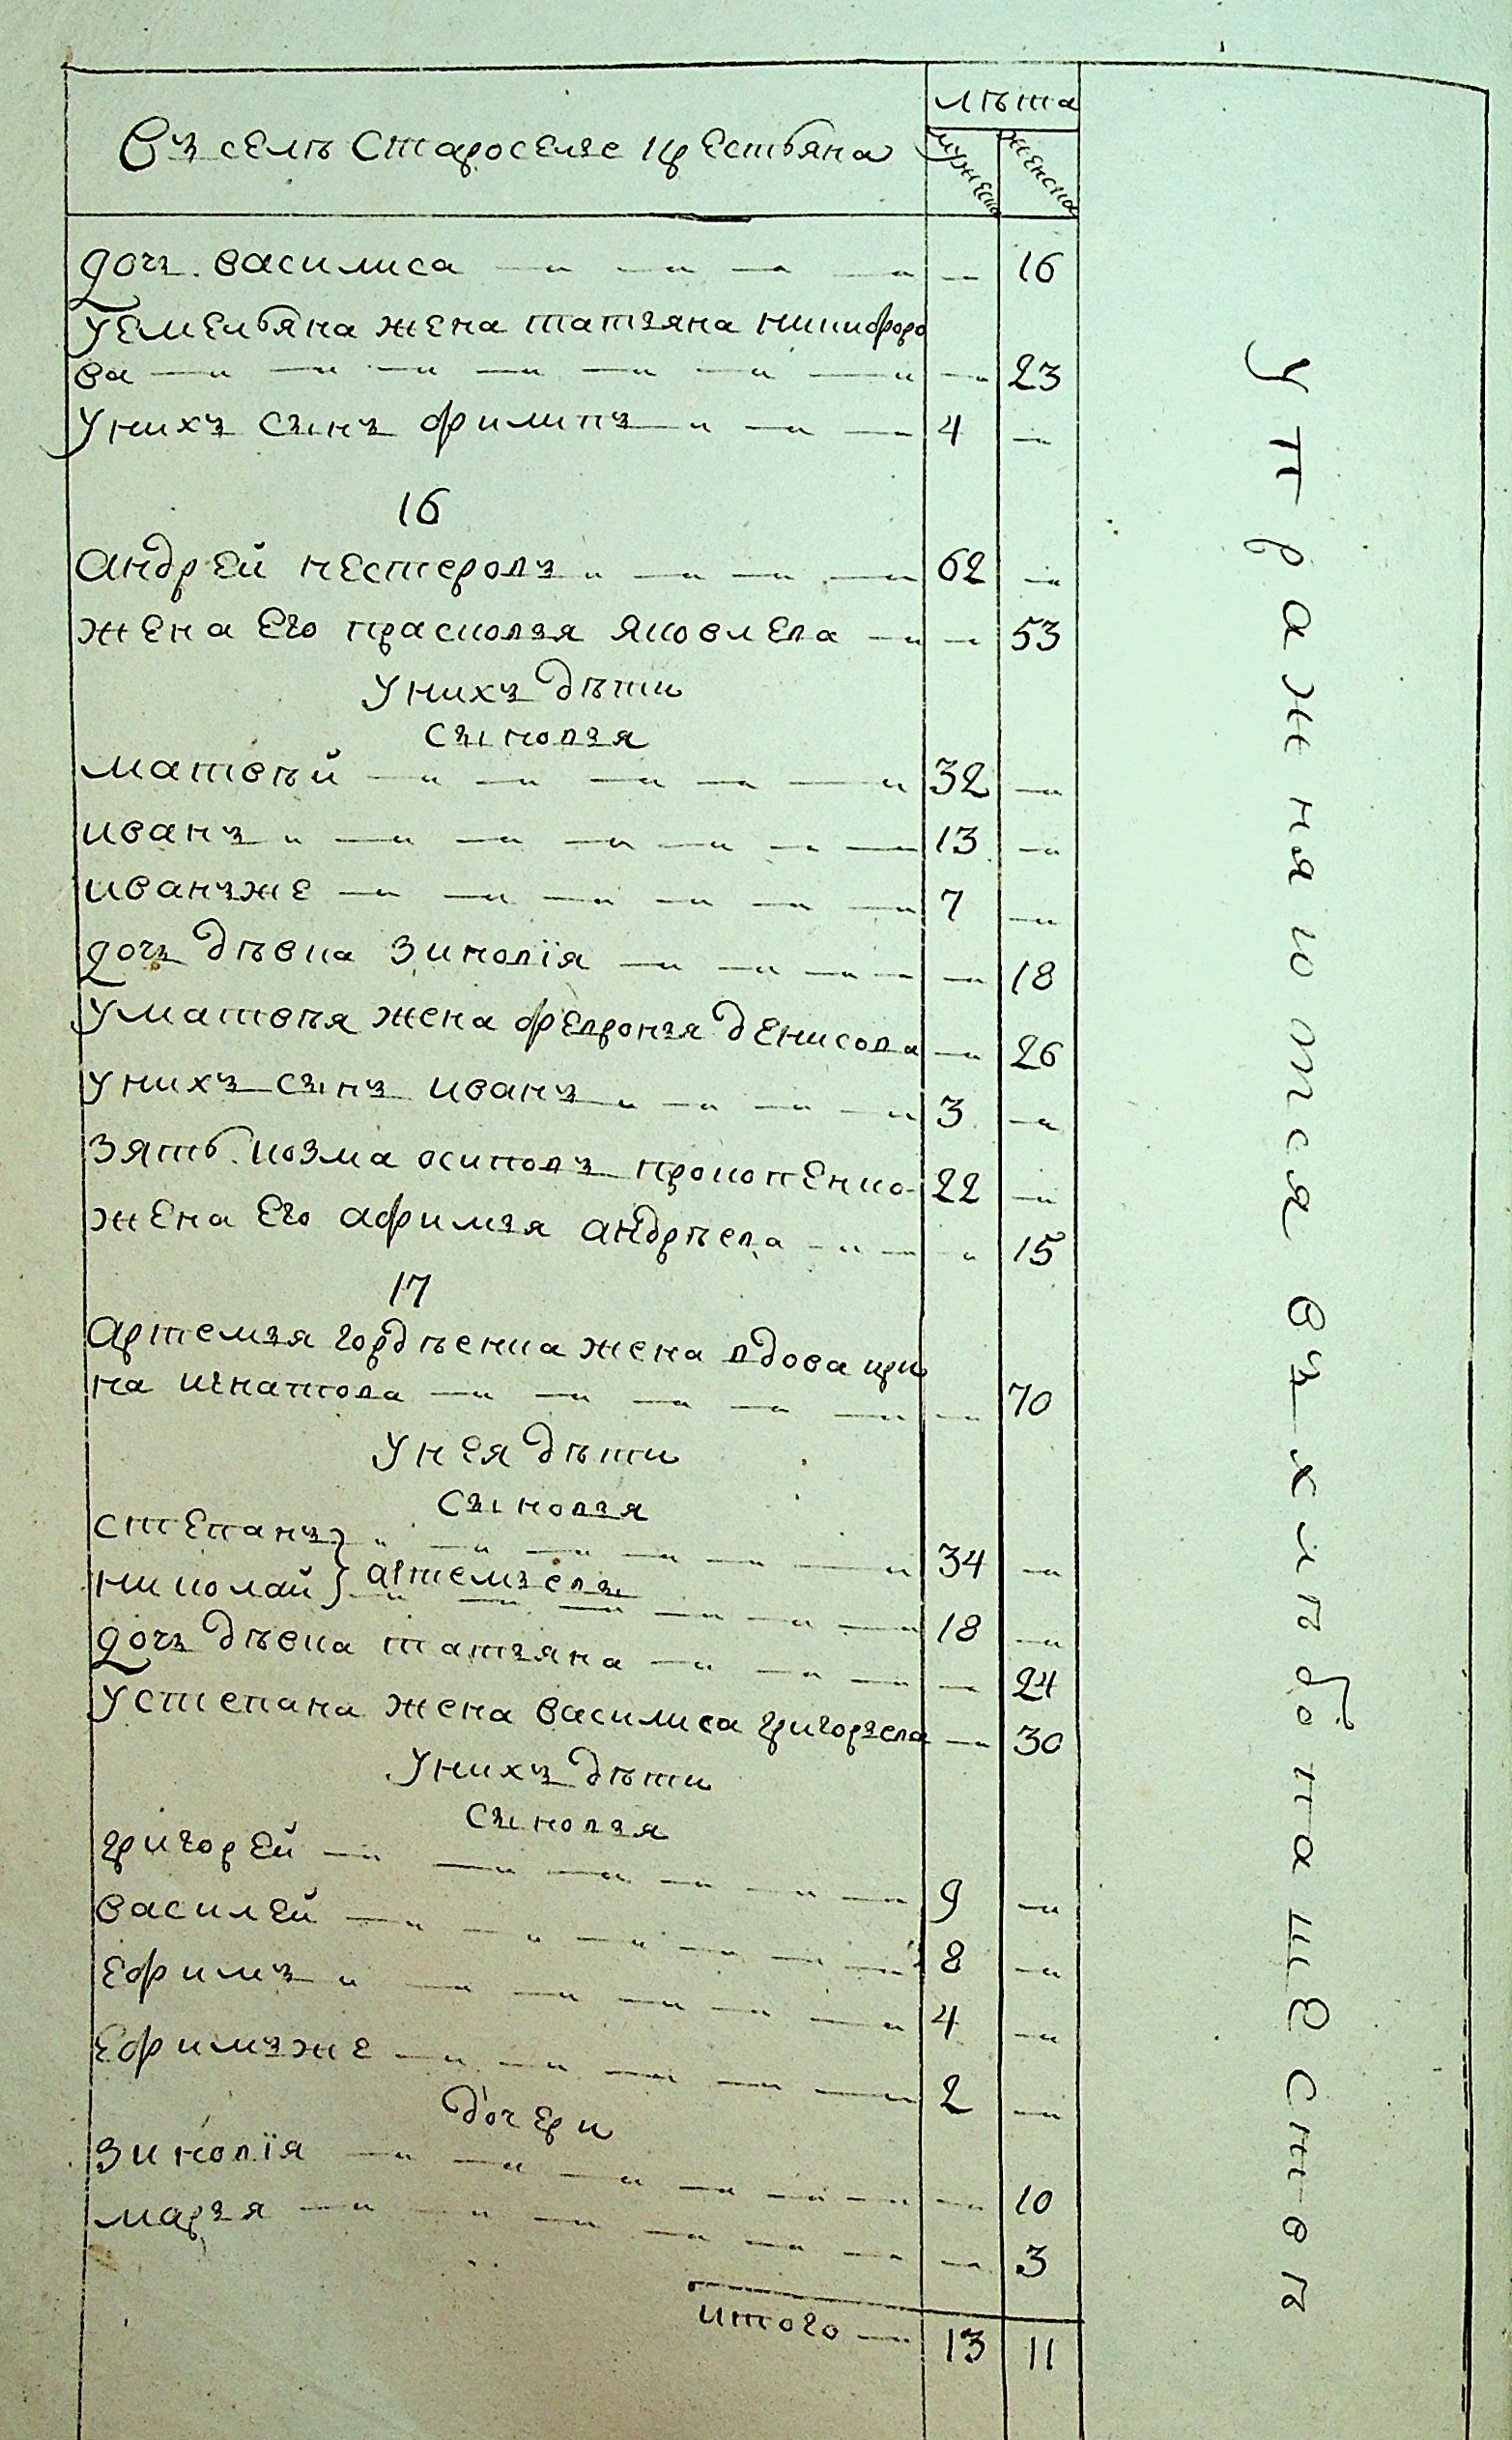 лѣта
Въ селѣ Староселье крестьяна
мужеска женска
дочь василиса 16
Уемельяна жена татьяна никифоро
ва 23
Унихъ сынъ филипъ 4
16
андрей нестеровъ 62
жена Его прасковья яковлева 53
Унихъ дѣти
сыновья
матвѣй 32
иванъ 13
иванъже 7
дочь дѣвка зиновія 18
Уматвѣя жена февронья денисова 26
Унихъ сынъ иванъ 3
зять козма осиповъ прокопенко 22
жена Его афимья андрѣева 15
17
артемья гордѣенка жена вдова ири
на игнатова 70
Унея дѣти
сыновья
степанъ 34
николай } артемьевы 18
дочь дѣвка татьяна 24
Устепана жена василиса григорьева 30
Унихъ дѣти
сыновья
григорей 9
василей 8
Ефимъ 4
Ефимъже 2
дочери
зиновія 10
марья 3
итого 13 11
Упражняются въ хлѣбопашествѣ